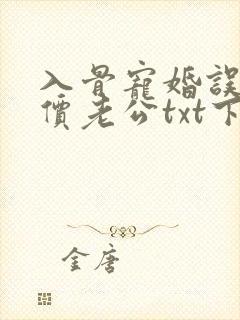 入骨寵婚誤
價老公txt下
金唐